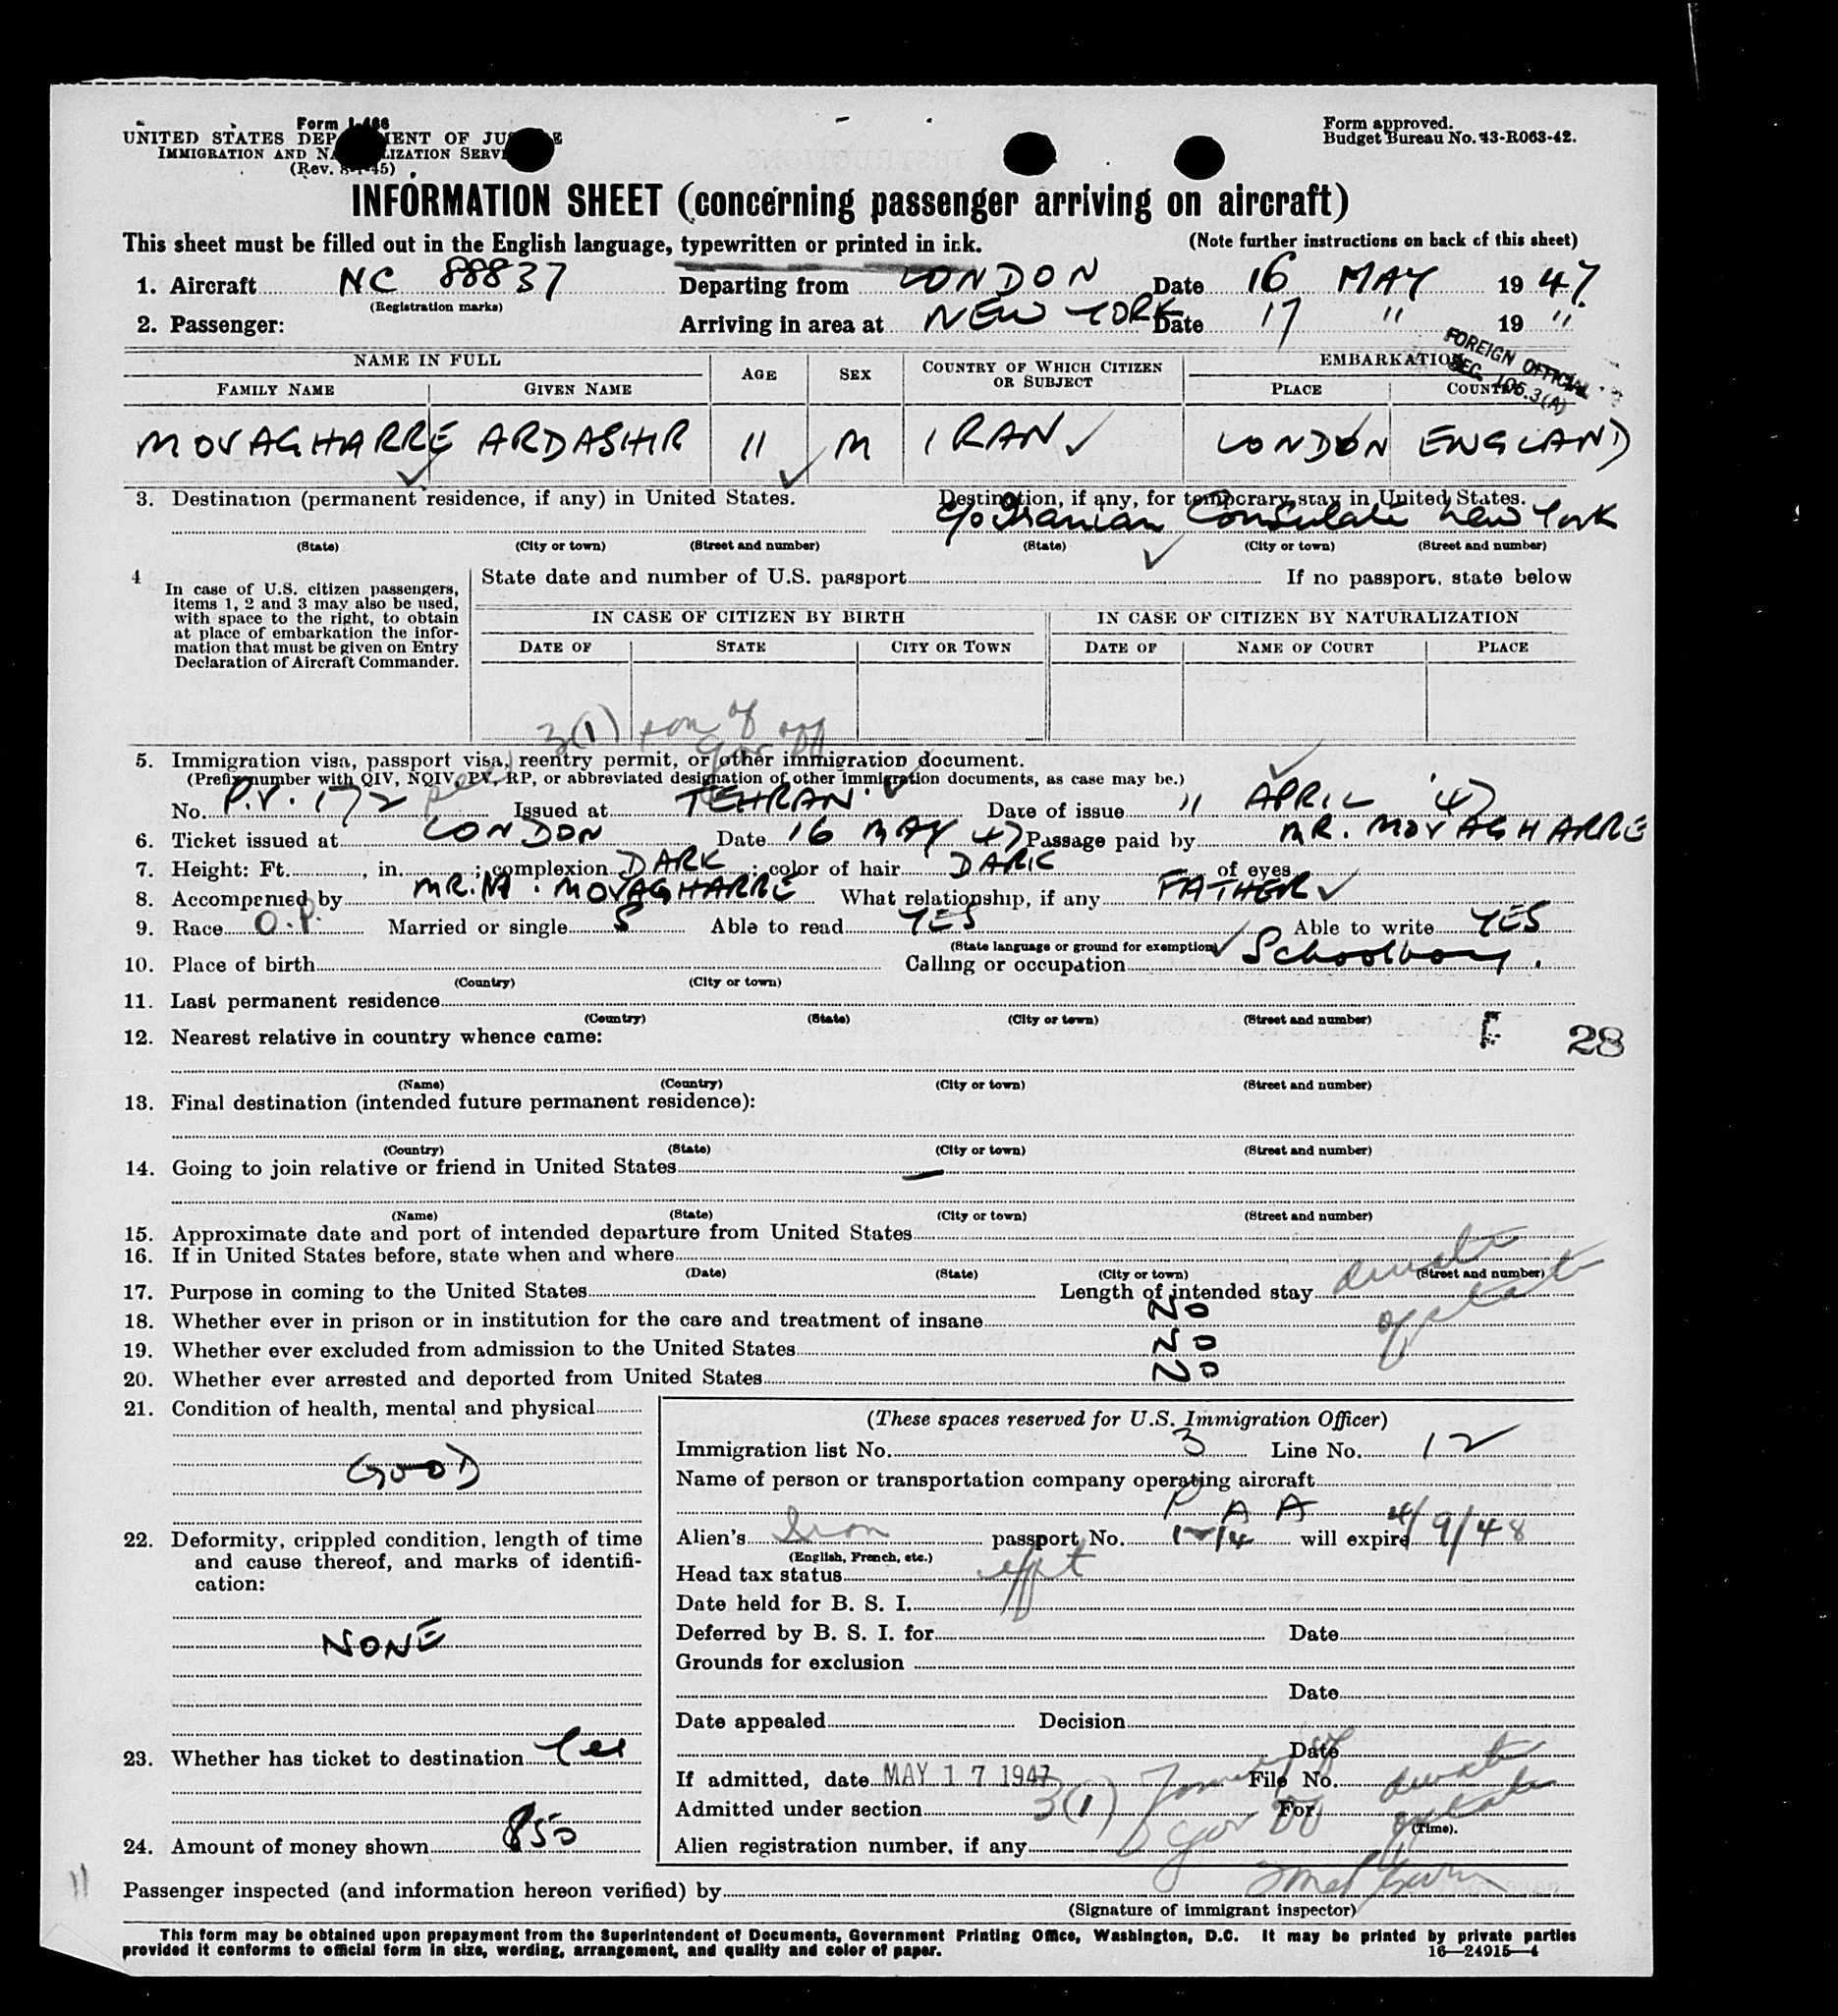 Form I-466
UNITED STATES DEP MENT OF JU E
IMMIGRATION AND NA LIZATION SERVI
(Rev. 8-1-45)
Form approved.
Budget Bureau No. 43-R063-42.
INFORMATION SHEET (concerning passenger arriving on aircraft)
This sheet must be filled out in the English language, typewritten or printed in ink. (Note further instructions on back of this sheet)
1. Aircraft NC 88837 Departing from LONDON Date 16 MAY 1947
(Registration marks)
2. Passenger: Arriving in area at NEW YORK Date 17 " 19 "
FOREIGN OFFICIAL
SEC. 105.3(A)
NAME IN FULL AGE SEX COUNTRY OF WHICH CITIZEN OR SUBJECT EMBARKATION
FAMILY NAME GIVEN NAME PLACE COUNTRY
MOVAGHARRE ARDASHIR 11 M IRAN LONDON ENGLAND
3. Destination (permanent residence, if any) in United States. Destination, if any, for temporary stay in United States.
c/o Iranian Consulate New York
(State) (City or town) (Street and number) (State) (City or town) (Street and number)
4 In case of U.S. citizen passengers, items 1, 2 and 3 may also be used, with space to the right, to obtain at place of embarkation the information that must be given on Entry Declaration of Aircraft Commander.
State date and number of U.S. passport If no passport, state below
IN CASE OF CITIZEN BY BIRTH IN CASE OF CITIZEN BY NATURALIZATION
DATE OF STATE CITY OR TOWN DATE OF NAME OF COURT PLACE
3(1) son of
gov off
5. Immigration visa, passport visa, reentry permit, or other immigration document.
(Prefix number with QIV, NQIV, PV, RP, or abbreviated designation of other immigration documents, as case may be.)
No. P.V. 172 Issued at TEHRAN Date of issue 11 APRIL '47
6. Ticket issued at LONDON Date 16 MAY 47 Passage paid by MR. MOVAGHARRE
7. Height: Ft. , in. ; complexion DARK ; color of hair DARK of eyes
8. Accompanied by MR. M. MOVAGHARRE What relationship, if any FATHER
9. Race O.P. Married or single S Able to read YES Able to write YES
(State language or ground for exemption)
10. Place of birth Calling or occupation Schoolboy.
(Country) (City or town)
11. Last permanent residence
(Country) (State) (City or town) (Street and number)
12. Nearest relative in country whence came: 28
(Name) (Country) (City or town) (Street and number)
13. Final destination (intended future permanent residence):
(Country) (State) (City or town) (Street and number)
14. Going to join relative or friend in United States —
(Name) (State) (City or town) (Street and number)
15. Approximate date and port of intended departure from United States
16. If in United States before, state when and where
(Date) (State) (City or town) (Street and number)
17. Purpose in coming to the United States Length of intended stay
18. Whether ever in prison or in institution for the care and treatment of insane NO
19. Whether ever excluded from admission to the United States NO
20. Whether ever arrested and deported from United States NO
21. Condition of health, mental and physical
GOOD
22. Deformity, crippled condition, length of time and cause thereof, and marks of identification:
NONE
23. Whether has ticket to destination Yes
24. Amount of money shown 850
(These spaces reserved for U.S. Immigration Officer)
Immigration list No. 3 Line No. 12
Name of person or transportation company operating aircraft
P A A
Alien's Iran passport No. will expire 4/9/48
(English, French, etc.)
Head tax status
Date held for B. S. I.
Deferred by B. S. I. for Date
Grounds for exclusion
Date
Date appealed Decision
Date
If admitted, date MAY 17 1947 File No.
Admitted under section 3(1) For
(Time).
Alien registration number, if any
11
Passenger inspected (and information hereon verified) by
(Signature of immigrant inspector)
This form may be obtained upon prepayment from the Superintendent of Documents, Government Printing Office, Washington, D.C. It may be printed by private parties
provided it conforms to official form in size, wording, arrangement, and quality and color of paper. 16—24915—4